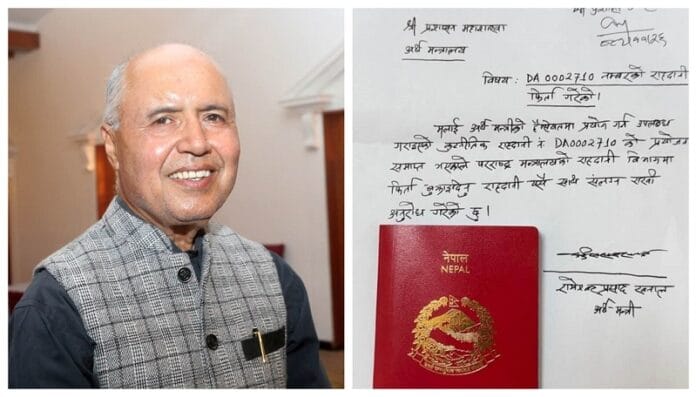 श्री प्रशासन महाशाखा
अर्थ मन्त्रालय
विषय : DA 0002710 नम्बरको राहदानी
फिर्ता गरेको।
मलाई अर्थ मन्त्रीको हैसियतमा प्रयोग गर्न उपलब्ध
गराइएको कुटनीतिक राहदानी नं DA0002710 को प्रयोजन
समाप्त भएकाले परराष्ट्र मन्त्रालयको राहदानी विभागमा
फिर्ता बुझाइदिनु राहदानी यसै साथ संलग्न राखी
अनुरोध गरेको छु।
रामेश्वर प्रसाद खनाल
अर्थ मन्त्री
नेपाल
NEPAL